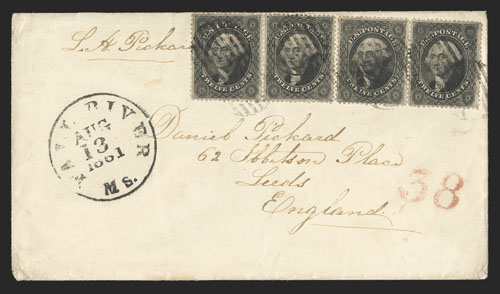 L. A. Pickard
U.S. POSTAGE U.S. POSTAGE U.S. POSTAGE U.S. POSTAGE
TWELVE CENTS TWELVE CENTS TWELVE CENTS TWELVE CENTS
FALL RIVER
AUG
13
1861
Ms.
Daniel Pickard
62 Ibbitson Place
Leeds
England.
38